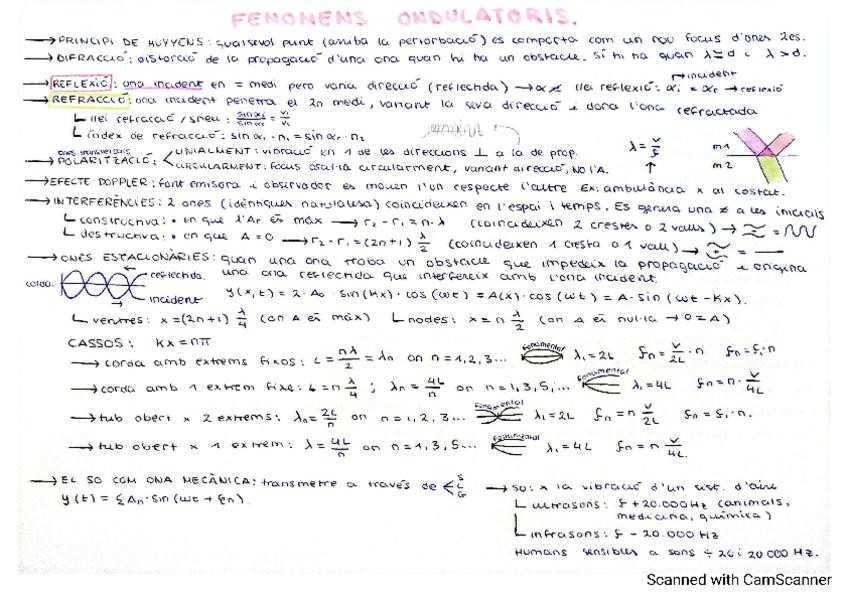 FENOMENS ONDULATORIS.
→ PRINCIPI DE HUYYENS: qualsevol punt (arriba la pertorbació) es comporta com un nou focus d'ones 2es.
→ DIFRACCIÓ: distorció de la propagació d'una ona quan hi ha un obstacle. Si hi ha quan λ≃d i λ>d.
incident
→ REFLEXIÓ: ona incident en = medi pero varia direcció (reflectida) → llei reflexió: αi = αr → reflexió
→ REFRACCIÓ: ona incident penetra el 2n medi, variant la seva direcció i dona l'ona refractada
llei refracció / sneu: sin αi / sin αr = v1/v2
índex de refracció: sin αi · n1 = sin αr · n2
ones transversals
→ POLARITZACIÓ: LINIALMENT: vibració en 1 de les direccions ⊥ a la de prop.
CIRCULARMENT: focus oscil·la circularment, variant direcció, NO l'A.
λ = v/f
m1
m2
→ EFECTE DOPPLER: font emisora i observador es mouen l'un respecte l'altre Ex: ambulància x al costat.
→ INTERFERÈNCIES: 2 ones (idèntiques naturalesa) coincideixen en l'espai i temps. Es genera una ≠ a les inicials
constructiva: • en que l'Ar és màx → r2 - r1 = n·λ (coincideixen 2 crestes o 2 valls) →
destructiva: • en que A = 0 → r2 - r1 = (2n+1) λ/2 (coincideixen 1 cresta o 1 vall) →
→ ONES ESTACIONÀRIES: quan una ona troba un obstacle que impedeix la propagació i origina
una ona reflectida que interfereix amb l'ona incident.
corda.
reflectida
incident
y(x,t) = 2·A0 · sin(Kx) · cos(ωt) = A(x) · cos(ωt) = A · sin(ωt - Kx).
ventres: x = (2n+1) λ/4 (on A és màx)
nodes: x = n λ/2 (on A és nul·la → 0 = A)
CASSOS: Kx = nπ
→ corda amb extrems fixos: L = nλ/2 = λn on n = 1,2,3... fonamental λ1 = 2L fn = v/2L · n fn = f1·n
→ corda amb 1 extrem fixe: L = n λ/4 ; λn = 4L/n on n = 1,3,5,... fonamental λ1 = 4L fn = n · v/4L
→ tub obert x 2 extrems: λn = 2L/n on n = 1,2,3... fonamental λ1 = 2L fn = n v/2L fn = f1·n.
→ tub obert x 1 extrem: λ = 4L/n on n = 1,3,5... fonamental λ1 = 4L fn = n v/4L.
→ EL SO COM ONA MECÀNICA: transmetre a través de S L G
y(t) = ξ An · sin(ωt + ξn)
→ SO: x la vibració d'un sist. d'aire
ultrasons: f + 20.000 Hz (animals,
medicina, química)
infrasons: f - 20.000 Hz
Humans sensibles a sons ÷ 20 i 20 000 Hz.
Scanned with CamScanner